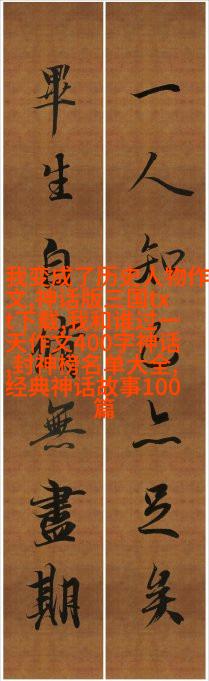 一人知己亦足矣
畢生自修無盡期
我变成了历史人物作
文,神话版三国tx
t下载,我和谁过一
天作文400字神话
,封神榜名单大全,
经典神话故事100
篇